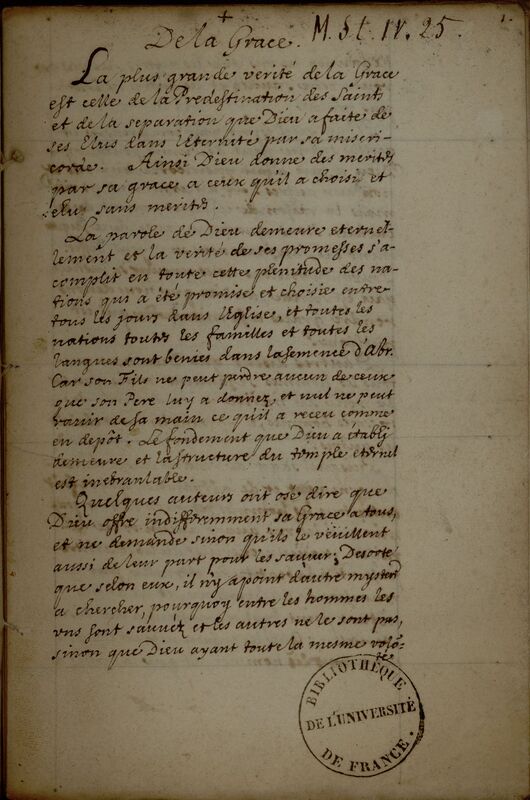 +
De la Grace. M. St. IV. 25. 1.
La plus grande verité de la Grace
est celle de la Prédestination des Saints
et de la separation que Dieu a faite de
ses Elus dans l'Eternité par sa miseri-
corde. Ainsi Dieu donne des merites
par sa grace a ceux qu'il a choisi et
elu sans merites.
La parole de Dieu demeure eternel-
lement et la verité de ses promesses s'a-
complit en toute cette plenitude des na-
tions qui a été promise et choisie entre
tous les jours dans l'Eglise, et toutes les
nations toutes les familles et toutes les
langues sont benies dans la semence d'Abr.
Car son Fils ne peut perdre aucun de ceux
que son Pere luy a donnez, et nul ne peut
ravir de sa main ce qu'il a receu comme
en depôt. Le fondement que Dieu a établi
demeure et la structure du temple eternel
est inebranlable.
Quelques auteurs ont osé dire que
Dieu offre indifferemment sa Grace a tous,
et ne demande sinon qu'ils le veüillent
aussi de leur part pour les sauver; Desorte
que selon eux, il n'y a point d'autre mystere
a chercher, pourquoy entre les hommes les
vns sont sauvéz et les autres ne le sont pas,
sinon que Dieu ayant toute la mesme volõ-
té
BIBLIOTHÈQUE
DE L'UNIVERSITÉ
DE FRANCE.